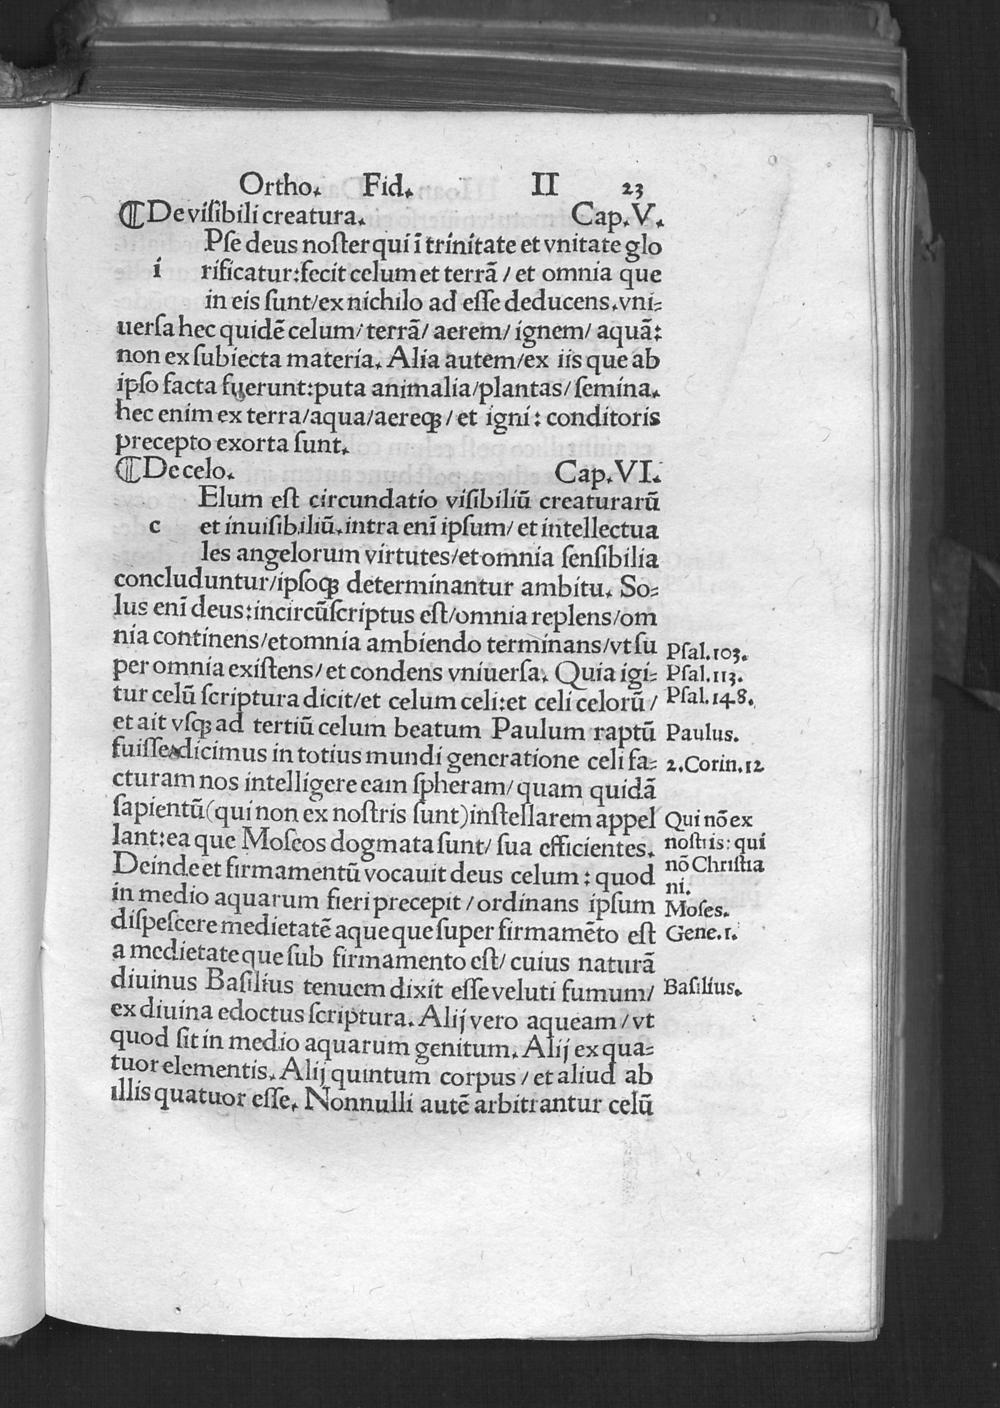 Ortho. Fid. II 23
¶De visibili creatura. Cap. V.
Pse deus noster qui ĩ trinitate et vnitate glo
i rificatur: fecit celum et terrã / et omnia que
in eis sunt/ ex nichilo ad esse deducens. vni-
uersa hec quidẽ celum/ terrã/ aerem/ ignem/ aquã:
non ex subiecta materia. Alia autem/ex iis que ab
ipso facta fuerunt: puta animalia/plantas/ semina.
hec enim ex terra/aqua/aereqꝫ/ et igni: conditoris
precepto exorta sunt.
¶De celo. Cap. VI.
Elum est circundatio visibiliũ creaturarũ
c et inuisibiliũ. intra enĩ ipsum/ et intellectua
les angelorum virtutes/et omnia sensibilia
concluduntur/ipsoqꝫ determinantur ambitu. So-
lus enĩ deus: incircũscriptus est/omnia replens/om
nia continens/et omnia ambiendo terminans/vt su
per omnia existens/ et condens vniuersa. Quia igi-
tur celũ scriptura dicit/et celum celi: et celi celorũ /
et ait vsqꝫ ad tertiũ celum beatum Paulum raptũ
fuisse. dicimus in totius mundi generatione celi fa-
cturam nos intelligere eam spheram/ quam quidã
sapientũ(qui non ex nostris sunt)instellarem appel
lant: ea que Moseos dogmata sunt/ sua efficientes.
Deinde et firmamentũ vocauit deus celum : quod
in medio aquarum fieri precepit / ordinans ipsum
dispescere medietatẽ aque que super firmamẽto est
a medietate que sub firmamento est/ cuius naturã
diuinus Basilius tenuem dixit esse veluti fumum/
ex diuina edoctus scriptura. Alij vero aqueam/ vt
quod sit in medio aquarum genitum. Alij ex qua-
tuor elementis. Alij quintum corpus / et aliud ab
illis quatuor esse. Nonnulli autẽ arbitrantur celũ
Psal. 103.
Psal. 113.
Psal. 148.
Paulus.
2. Corin. 12
Qui nõ ex
nostris: qui
nõ Christia
ni.
Moses.
Gene. 1.
Basilius.